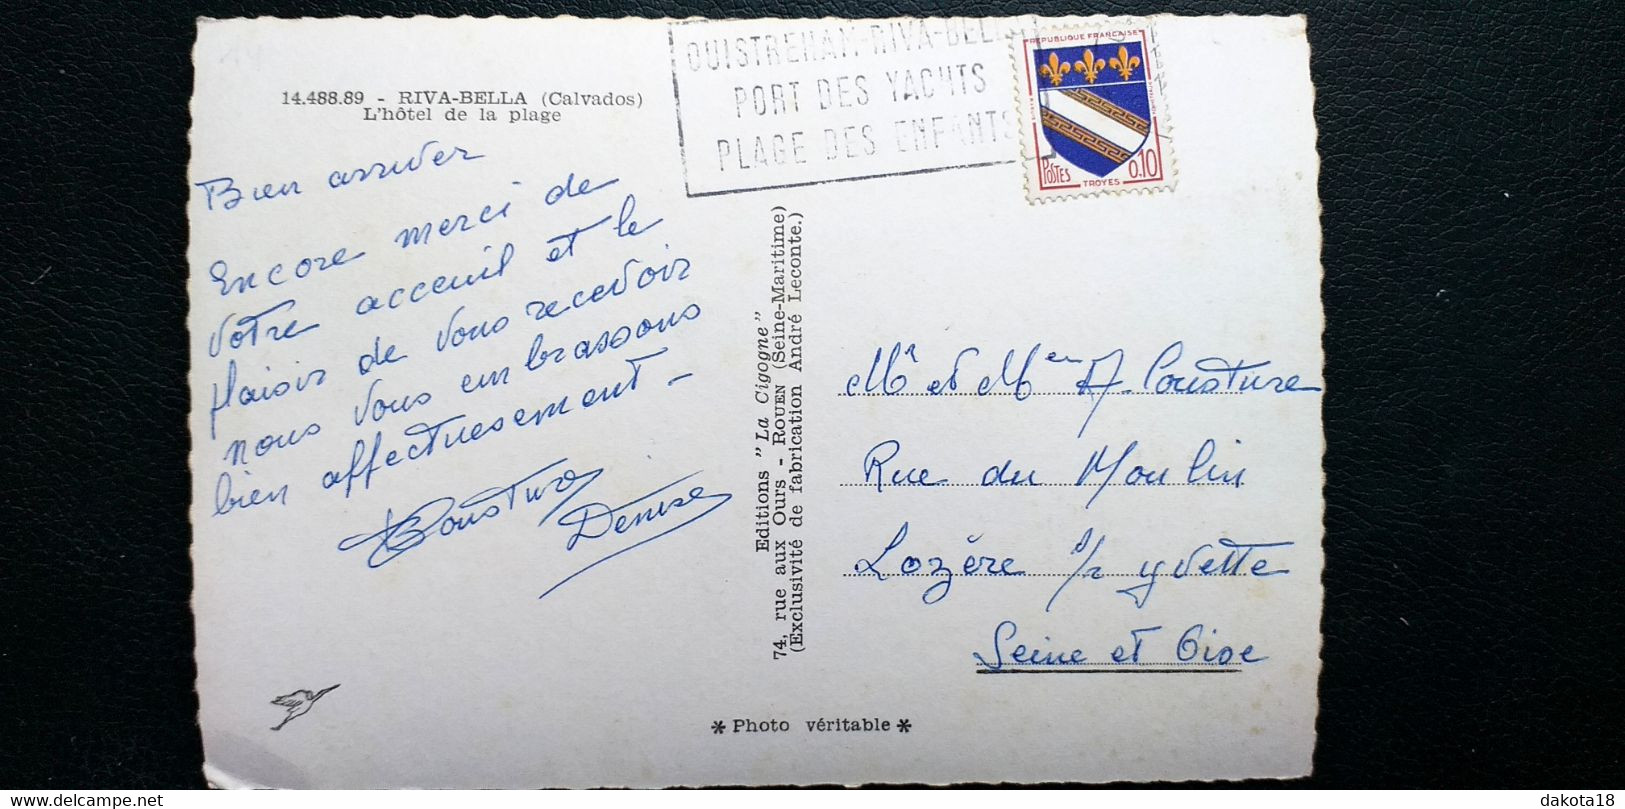 14.488.89 - RIVA-BELLA (Calvados)
L'hôtel de la plage
Bien arriver
Encore merci de
votre acceuil et le
plaisir de vous recevoir
nous vous embrassons
bien affectuesement -
Cousture
Denise
OUISTREHAM-RIVA-BELLA
PORT DES YACHTS
PLAGE DES ENFANTS
REPUBLIQUE FRANÇAISE
POSTES
0,10
TROYES
Editions "La Cigogne"
74, rue aux Ours - ROUEN (Seine-Maritime)
(Exclusivité de fabrication André Leconte.)
Mr et Mme A. Cousture
Rue du Moulin
Lozère s/ yvette
Seine et Oise
* Photo véritable *
dakota18